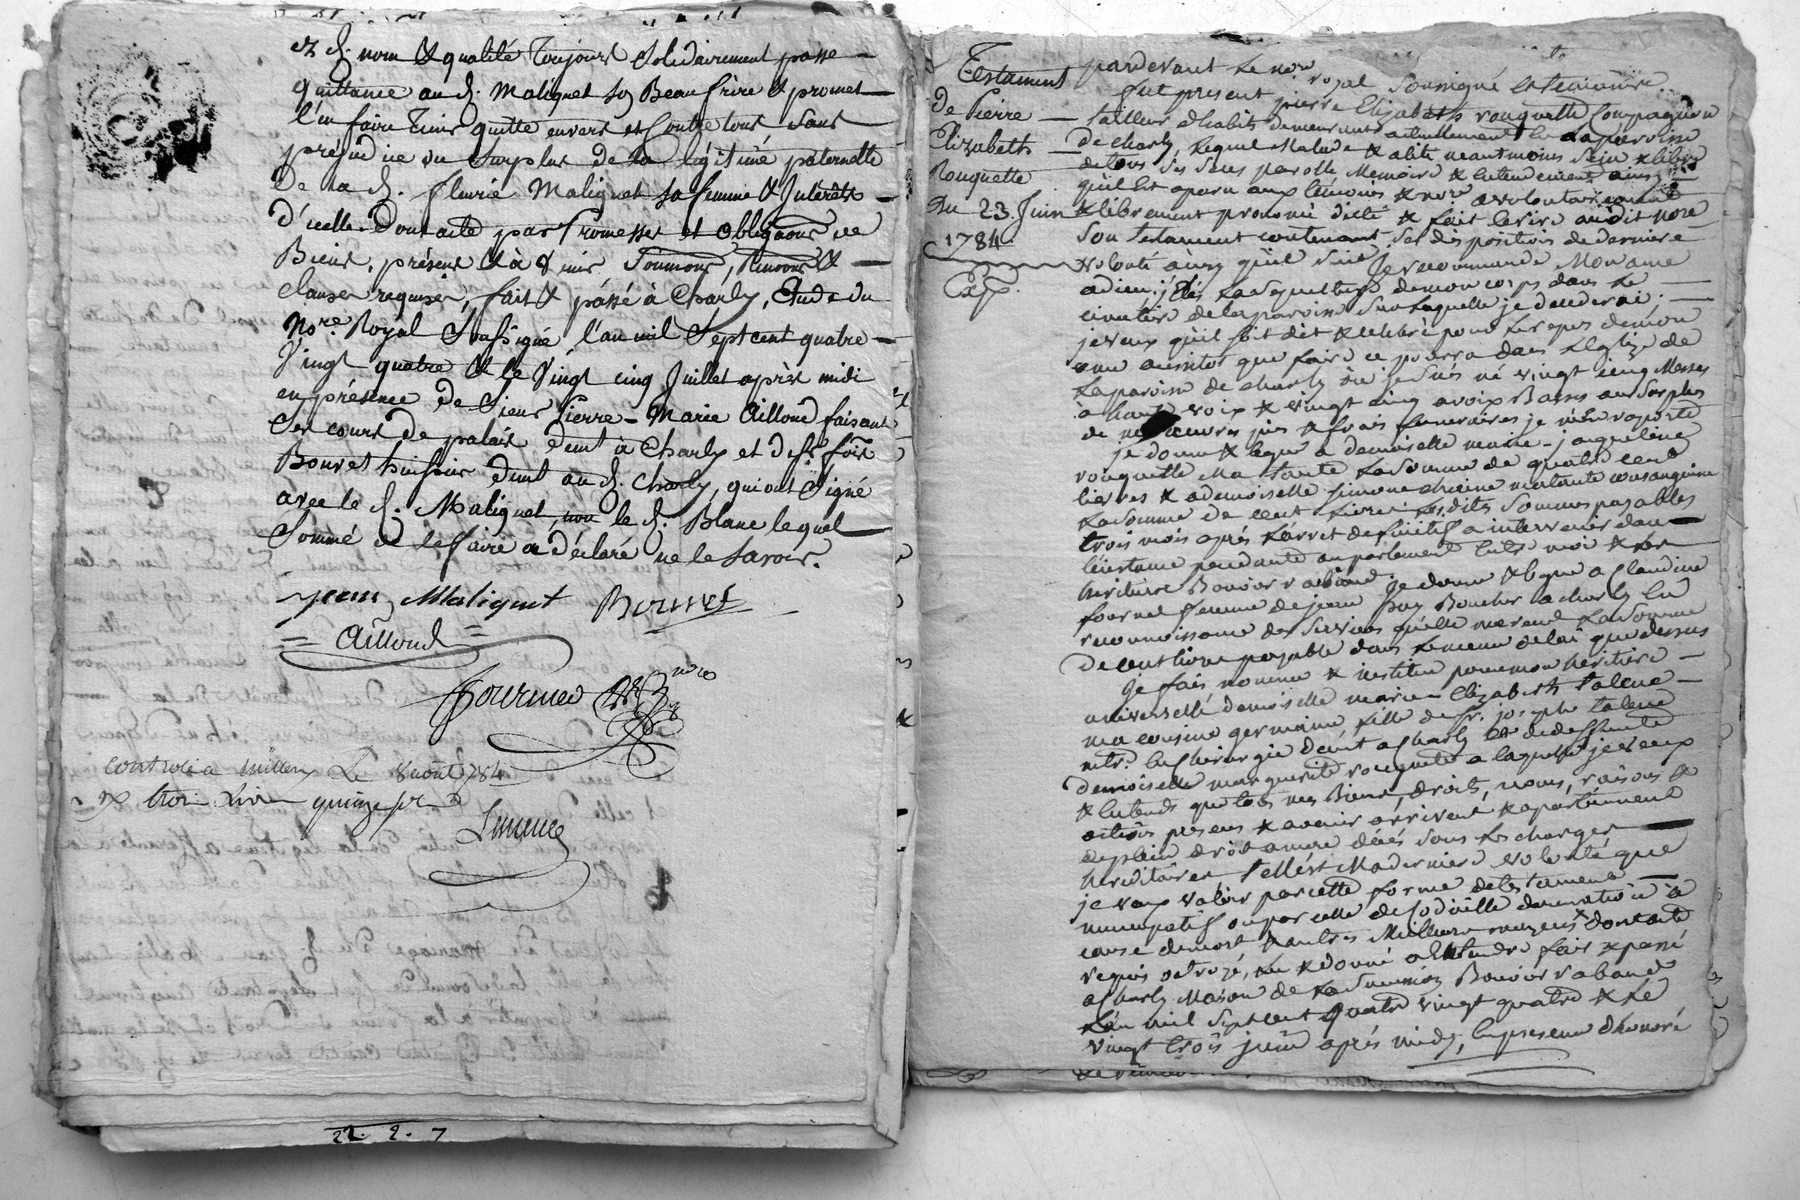 et d. nom & qualité Toujours Solidairement passe
quittance au d. Malignet Son Beau frère & promet
l'en faire Tenir quitte envers et Contre tous Sans
prejudice du Surplus de la légitime paternelle
De la d. fleurie Malignet Sa femme & Interêts
D'icelle. Dont acte par Promesses et obligaons de
Biens, présens & à Venir Soumons, Renvons &
clauses requises, fait & passé à Charly, Etude du
Nore. Royal Soussigné, l'an mil Sept cent quatre
Vingt quatre & le Vingt cinq Juillet après midi
en présence de Sieur Pierre-Marie Ailloud faisant
Ses cours de palais demt à Charly et de Sr. fois
Bouvet huissier demt au d. Charly, qui ont Signé
avec le d. Malignet, non le d. Blanc lequel
Sommé de le faire a déclaré ne le Savoir.
Jean Malignet Bouvet
Aillioud
controlé a millery Le 8 aout 1784
trois livres quinze s
22. 2. 7
Testament
de Pierre
Elizabeth
Rouquette
Du 23 Juin
1784
Exp
pardevant Le nore royal Soussigné & temoins
fut present pierre Elizabeth rouquette Compagnon
tailleur d'habits demeurant actuellement en la paroisse
de charly, lequel Malade & alité neantmoins sein & libre
de tous ses sens parolle Memoire & Entendement ainsy
qu'il Est aparu aux temoins & nore a volontairement
& librement prononcé dicté & fait Ecrire audit nore
Son testament contenant Ses dispositions de derniere
volonté ainsy qu'il Suit Je recommande Mon ame
a dieu, j'Elis La Sepulture de mon corps dans Le
cimetiere de la paroisse Sur Laquelle je decederai
je veux qu'il soit dit & celebré pour Le repos de mon
ame aussitot que faire ce pourra dans L'Eglize de
La paroisse de charly où je suis né vingt cinq Messes
à haute voix & vingt cinq a voix Basse au surplus
de mes œuvres pies & frais funeraires je m'en raporte
je donne & legue a demoiselle marie-jacqueline
rouquette Ma tante La Somme de quatre cent
livres & a demoiselle Simone chaine ma tante consanguine
La Somme de cent Livres Lesdites Sommes payables
trois mois après L'arret deffinitif a intervenir dans
L'instance pendante au parlement Entre moi & Les
heritiers Bouvier rabaud. Je donne & legue a Claudine
fournel femme de jean Boucher a charly En
reconnoissance des Services qu'elle me rend La Somme
de cent livres payable dans Le meme delai que dessus
Je fais nomme & institue pour mon heritiere
universelle demoiselle marie Elizabeth talene
ma cousine germaine fille de Sr. joseph talene
mtre. En chirurgie demt a charly & de deffunte
demoiselle marguerite rouquette a laquelle je veux
& Entends que tous mes Biens, droits, noms, raisons &
actions presens & avenir arrivent & apartiennent
de plein droit a mon décès Sous Les charges
hereditaires telle est Ma derniere volonté que
je veux valoir par cette forme de testament
nuncupatif ou par celle de codicille donnation à
cause de mort & autres Meilleurs moyens dont acte
requis octroyé, Lu & donné a Entendre fait & passé
a charly Maison de La Succession Bouvier rabaud
L'an mil Sept cent Quatre vingt quatre & Le
vingt trois juin après midy, En presence d'honoré